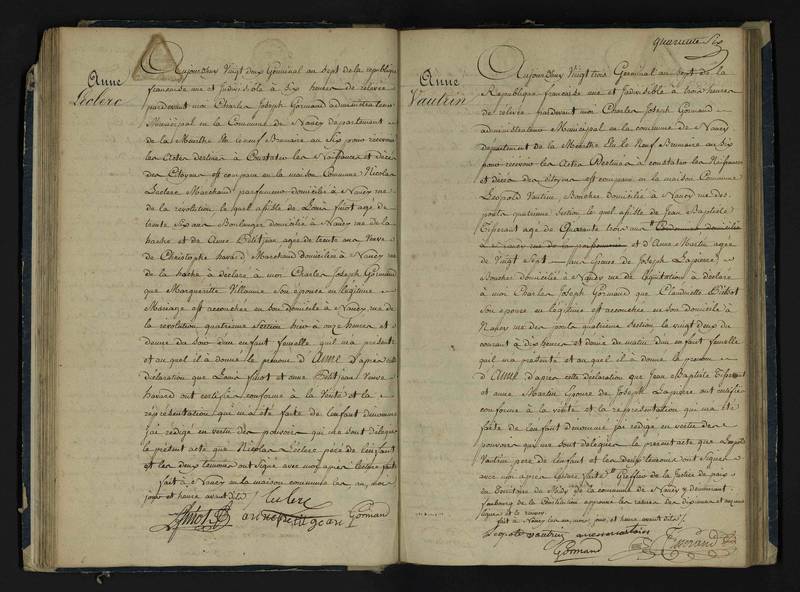 Anne
Leclerc
Aujourdhuy Vingt deux Germinal an Sept de la republique
francaise une et Indivisible à Six heures de relevée
pardevant moi Charles Joseph Gormand administrateur
Municipal en la Commune de Nancy departement
de la Meurthe élu le neuf Brumaire an Six pour recevoir
les Actes destinés à Constater les Naissances et décès
des Citoyens est comparu en la maison Commune Nicolas
Leclerc Marchand parfumeur domicilié à Nancy rue
de la revolution lequel assisté de Louis finot agé de
trente Six ans Boulanger domicilié à Nancy rue de la
hache et de Anne Petitjean agée de trente ans Veuve
de Christophe havard Marchand domiciliée à Nancy rue
de la hache à déclaré à moi Charles Joseph Gormand
que Margueritte Villaume Son épouse en légitime
Mariage est accouchée en son domicile à Nancy rue de
la revolution quatrieme Section hier à onze heures et
demie du soir d'un enfant femelle qu'il m'a présenté
et auquel il à donné le prenom d'Anne d'apres cette
déclaration que Louis finot et anne Petitjean Veuve
havard ont certifiée conforme à la Vérité et la
représentation qui m'a été faite de l'enfant denommé
j'ai redigé en vertu des pouvoirs qui me sont delegués
le présent acte que Nicolas Leclerc pere de l'enfant
et les deux temoins ont Signé avec moi apres lecture faite
fait à Nancy en la maison commune les an, mois
jour et heure avant dits
Leclerc
finot
anne petitgean
Gormand
quarante Six
Anne
Vautrin
Aujourdhuy Vingt trois Germinal an Sept de la
Republique francaise une et Indivisible à trois heures
de relevée pardevant moi Charles Joseph Gormand
administrateur Municipal en la commune de Nancy
departement de la Meurthe élu le Neuf Brumaire an Six
pour recevoir les Actes Destinés à constater les Naissances
et décès des Citoyens est comparu en la maison Commune
Léopold Vautrin Boucher domicilié à Nancy rue des
ponts quatrieme Section lequel assisté de Jean Baptiste
Tisserant agé de Quarante trois ans domicilié
à Nancy rue de la poissonnerie et d'Anne Martin agée
de Vingt Sept ans Epouse de Joseph Lapierre
Boucher domicilié à Nancy rue de l'équitation à déclaré
à moi Charles Joseph Gormand que Claudinette
Son épouse en legitime est accouchée en son domicile à
Nancy rue des ponts quatrieme Section le vingt deux du
courant à dix heures et demie du matin d'un enfant femelle
qu'il m'a présenté et auquel il à donné le prenom
d'Anne d'apres cette déclaration que Jean Baptiste Tisserant
et anne Martin Epouse de Joseph Lapierre ont certifiée
conforme à la vérité et la representation qui m'a été
faite de l'enfant denommé j'ai redigé en vertu des
pouvoirs qui me sont delegués le présent acte que Léopold
Vautrin pere de l'enfant et les deux temoins ont Signé
avec moi apres lecture faite Greffier de la Justice de paix
du Territoire du Midy de la commune de Nancy y demeurant
faubourg de la Constitution approuvé les ratures
fait à Nancy les an, mois, jour, et heure avant dits
Leopold vautrin anne martin Tisserand
Gormand